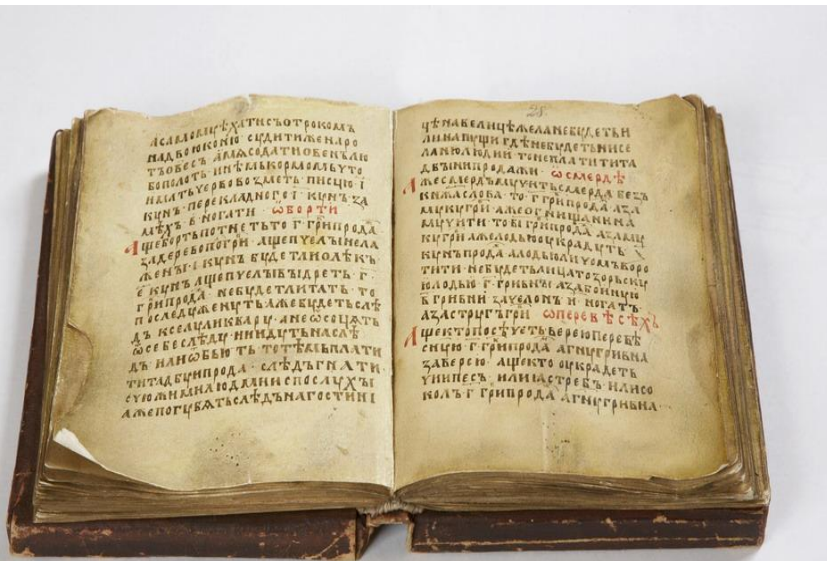 АСАМОМУѢХАТИСЪОТРОКОМЪ
НАДВОЮКОНЮ СУДИТИЖЕНАРО
ТЪОВЕСЪ АМѦСОДАТИОВЕНЪЛЮ
БОПОЛОТЬ ИНѢМЬКОРМОМЬУТО
ИМАТЬУЕРВОВОЗМЕТЬ ПИСЦЮ І
КУНЪ ПЕРЕКЛАДНОГО Е КУНЪ ЗА
МѢХЪ В НОГАТИ ѠБОРТИ
АЩЕБОРТЬПОТНЕТЬТО Г ГРИПРОДА
ЗАДЕРЕВОПОГРИ АЩЕПУЕЛЫНЕЛА
ЖЕНЫ І КУНЪ БУДЕТЛИОЛѢКЪ
Е КУНЪ АЩЕПУЕЛЫВЫДРЕТЬ Г
ГРИПРОДА НЕБУДЕТЛИТАТЬ ТО
ПОСЛЕДУЖЕНУТЬАЖЕБУДЕТЬСЛѢ
ДЪ КСЕЛУИЛИКВАРУ АНЕѠСОЦѦТЬ
ѠСЕБЕСЛѢДУ НИИДУТЬНАСЛѢ
ДЪ ИЛИѠБЬЮТЬ ТОТѢМЬПЛАТИ
ТИТАДБУИПРОДА СЛѢДЪГНАТИ
СУЮЖИМИЛЮДМИИСПОСЛУХЫ
АЖЕПОГУБѦТЬСЛѢДЪНАГОСТИНІ
28
ЦѢНАВЕЛИЦѢЖЕЛАНЕБУДЕТЬИ
ЛИНАПУЩИГДѢНЕБУДЕТЬНИСЕ
ЛАНИЛЮДИИ ТОНЕПЛАТИТИТА
ДБЪІНИПРОДАЖИ ѠСМЕРДѢ
АЖЕСМЕРДЪМУУИТЬСМЕРДАБЕЗЪ
КНѦЖАСЛОВА ТО Г ГРИПРОДА АЗА
МУКУГРИ АЖЕОГНИЩАНИНА
МУУИТИ ТОВІ ГРИПРОДА АЗАМУ
КУГРИ АЖЕЛОДЬЮОУКРАДУТЬ
КУНЪПРОДА АЛОДЬЮЛИУОМЪВОРО
ТИТИ НЕБУДЕТЬЛИЦАТОЗОРЬСКУ
ЮЛОДЬЮ Г ГРИВНЫ АЗАБОИНУЮ
В ГРИВНИ ЗАУЕЛОНЪ И НОГАТЪ
АЗАСТРУГЪГРИ ѠПЕРЕВѢСѢХЪ
АЩЕКТОПОСѢУЕТЬВЕРЕЮПЕРЕВѢ
СНУЮ Г ГРИПРОДА АГНУГРИВНА
ЗАВЕРЕЮ АЩЕКТО ОУКРАДЕТЬ
УИИПЕСЪ ИЛИѦСТРЕБЪ ИЛИСО
КОЛЪ Г ГРИПРОДА АГНУГРИВНА